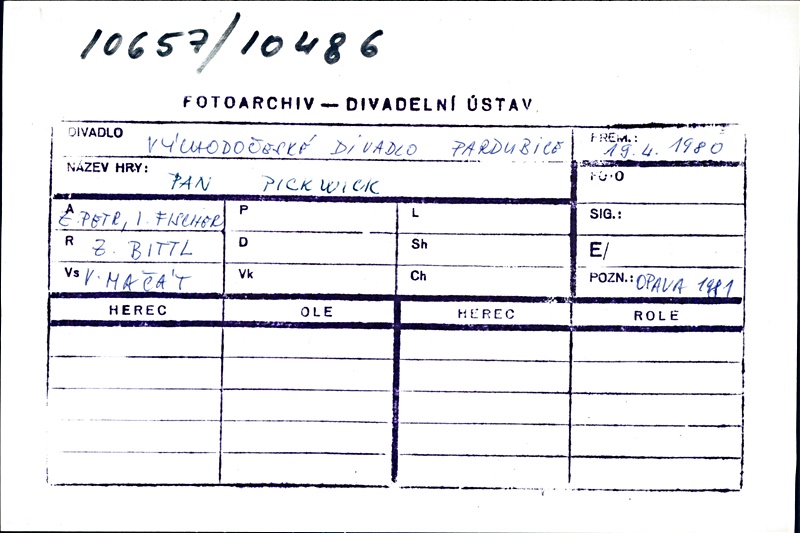 10657/10486
FOTOARCHIV — DIVADELNÍ ÚSTAV
DIVADLO VÝCHODOČESKÉ DIVADLO PARDUBICE
PREM.: 19. 4. 1980
NÁZEV HRY: PAN PICKWICK
FOTO
A Z. PETR, I. FISCHER
P
L
SIG.:
R Z. BITTL
D
Sh
E/
Vs V. MAČÁT
Vk
Ch
POZN.: OPAVA 1981
HEREC OLE HEREC ROLE